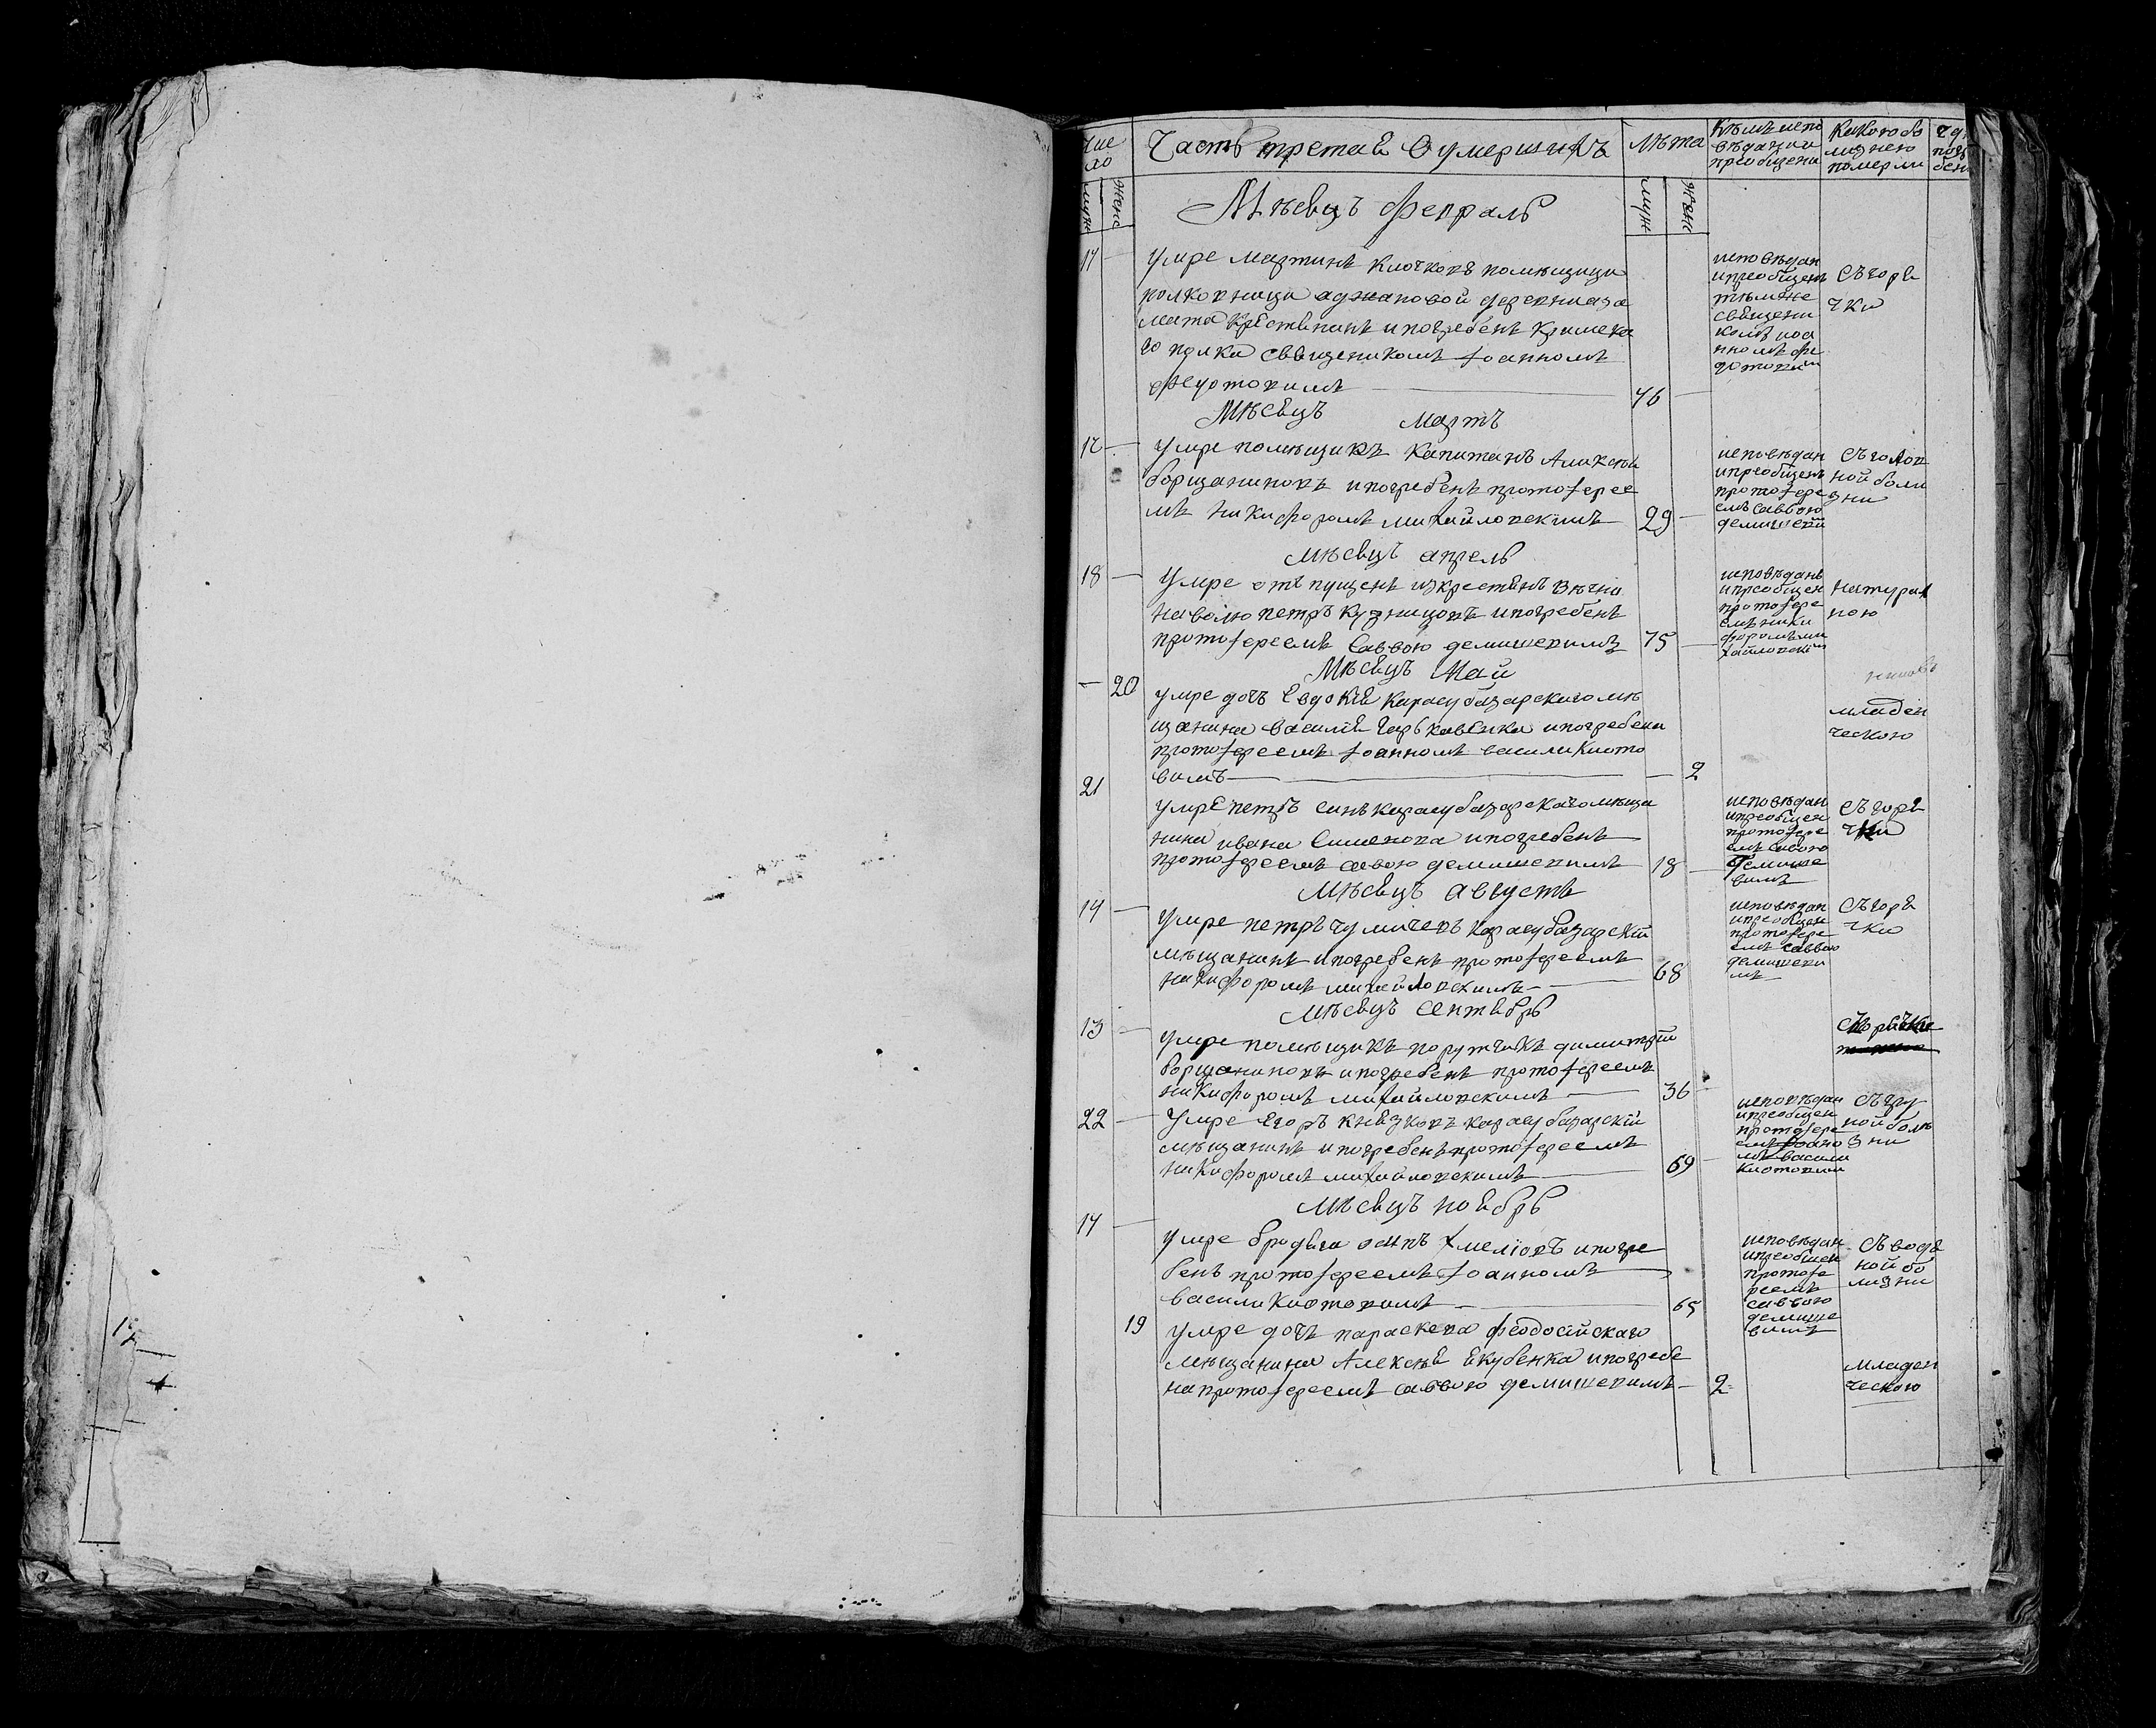 Часть третая О умершихъ
Лѣта
Кѣмъ испо
вѣданы и
преобщены
Какою бо
лезнею
померли
муж женс
муж женс
Мѣсяцъ Февраль
17 — умре мартинъ Клочковъ помещицы
полковници
крестянинъ и погребенъ
го полка священикомъ Іоанномъ
Федотовимъ — 46 —
исповѣдан
и преобщенъ
тѣмже
священи
комъ иоа
нномъ фе
дотовим
съ горя
чки
Мѣсяцъ Мартъ
12 — умре помѣщикъ Капитанъ Аликсѣй
борщаниновъ и погребенъ протоіерее
мъ Никифоромъ михайловскимъ — 29 —
исповѣдан
и преобщенъ
протоіере
емъ саввою
демишеви
съ голов
ной боли
зни
мѣсяцъ апрель
18 — Умре отъ пущенъ изкрестянъ вѣчно
на волю петръ Кузницовъ и погребенъ
протоіереемъ Саввою демишевимъ 75 —
исповѣданъ
и преобщен
протоіере
емъ ники
форомъ ми
хайловским
натурал
ною
Мѣсяцъ Май
— 20 умре дочъ Евдокія Карасубазарскаго мѣ
щанина василія и погребена
протоіереемъ Іоанномъ василикиото
вимъ — — 2
младен
ческою
21 умре петръ синъ карасубазарскаго мѣща
нина ивана Симонова и погребенъ
протоіереемъ савою демишевимъ 18 —
исповѣдан
и преобщен
протоіере
емъ савою
демише
вимъ
съ горя
чки
Мѣсяцъ августъ
14 — умре петръ чумичевъ карасубазарскій
мѣщанинъ и погребенъ протоіереемъ
никифоромъ михайловскимъ — 68
исповѣдан
и преобщен
протоіере
емъ саввою
демишеви
мъ
съ горя
чки
мѣсяцъ сентябрь
13 — умре помѣщикъ порутчикъ димитрій
борщаниновъ и погребенъ протоіереемъ
никифоромъ михайловскимъ — 36 —
22 — Умре Егоръ Князковъ карасубазарскій
мѣщанинъ и погребенъ протоіереемъ
никифоромъ михайловскимъ — 69 —
исповѣдан
и преобщен
протоіере
емъ Іоанно
мъ васили
киотовим
съ гру
ной болѣ
зни
мѣсяцъ ноябрь
14 — умре бродяга осипъ хмеліовъ и погре
бенъ протоіереемъ Іоанномъ
василикиотовимъ — 65
исповѣдан
и преобщен
протоіе
реемъ
саввою
демише
вимъ
съ водя
ной бо
лизни
19 умре дочъ параскева феодосійскаго
мѣщанина Алексѣя Якубенка и погребе
на протоіереемъ саввою демишевимъ — 2
младен
ческою